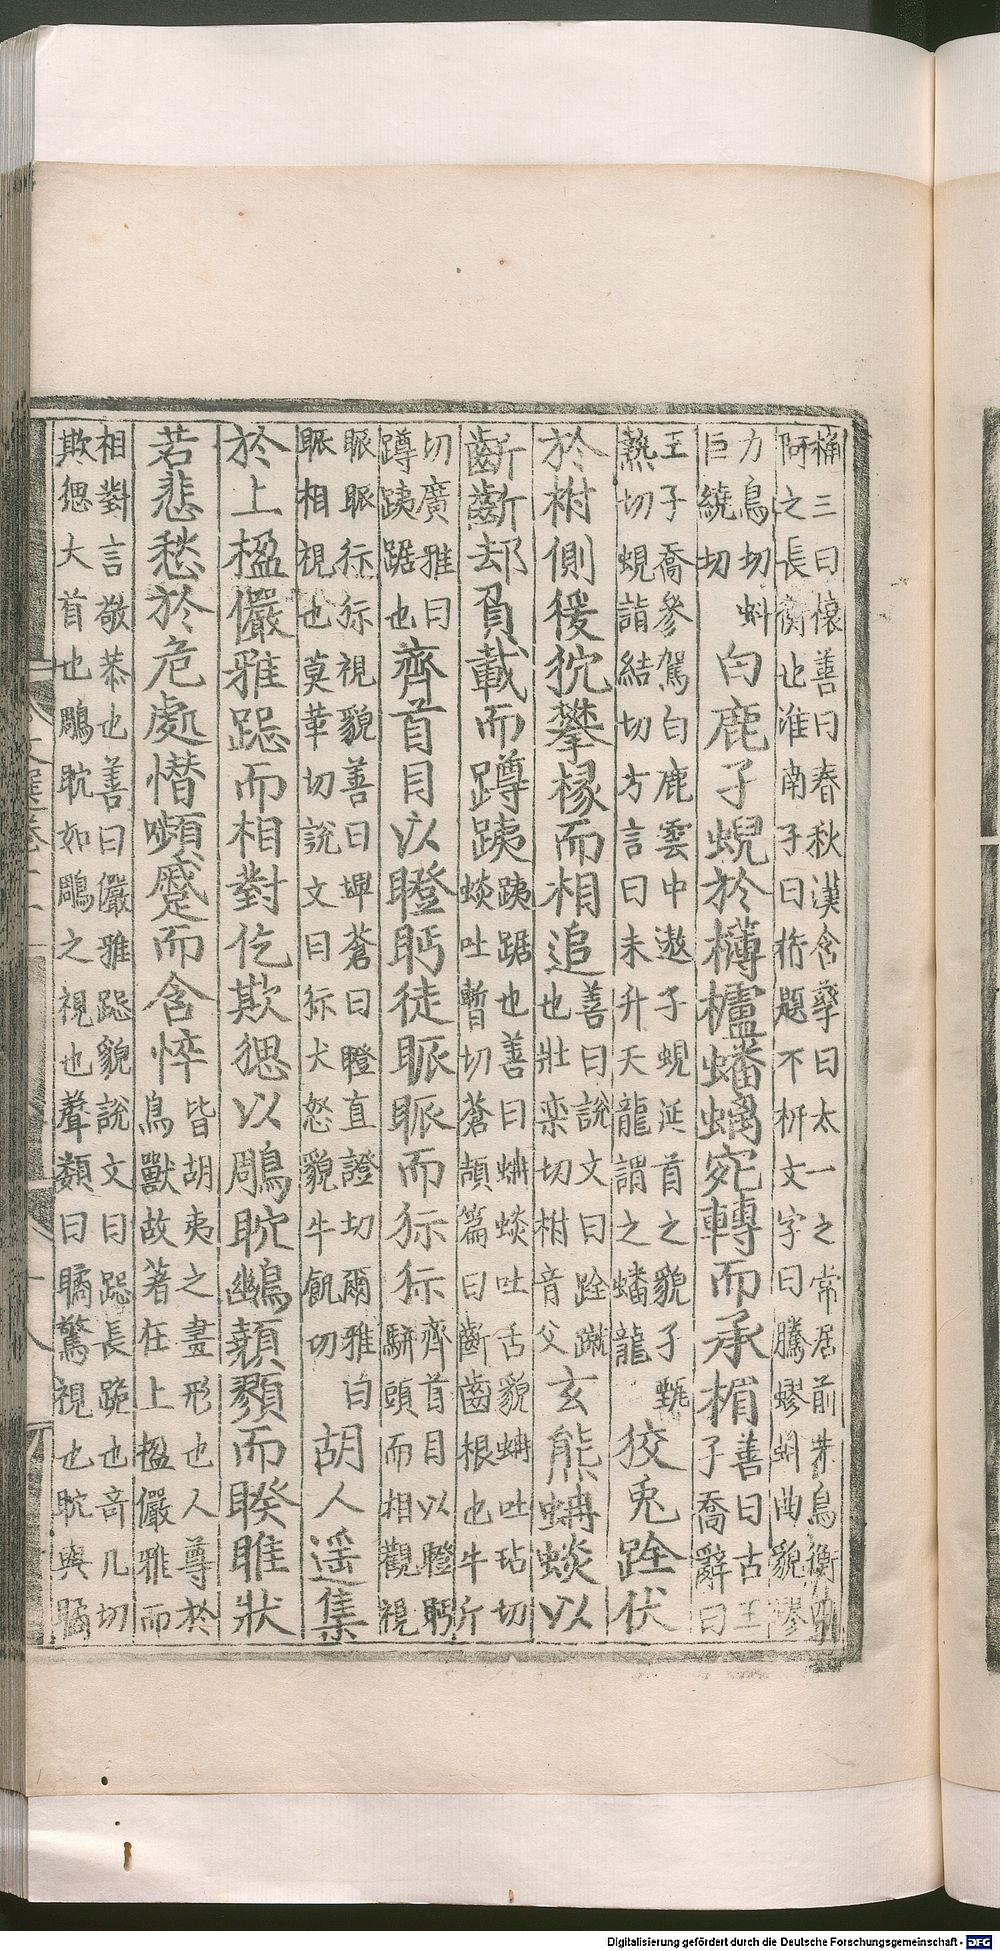 桷三曰懷善曰春秋漢含孳曰太一之常居前朱鳥衡
阿之長衡也淮南子曰桁題不枅文字曰騰蟉蚓曲貌蟉
力鳥切切蚪
巨繞切
白鹿子蜺於欂櫨蟠螭宛轉而承楣
善曰古王
子喬辭曰
王子喬參駕白鹿雲中遨子蜺延首之貌子甈
熱切蜺詣結切方言曰未升天龍謂之蟠龍
狡兎跧伏
於柎側猨狖攀椽而相追
善曰說文曰跧蹴
也壯栾切柎音父
玄熊蚺蛛以
齗齗却負載而蹲跠
跠踞也善曰蚺蛛吐舌貌蚺吐玷切
蛛吐暫切蒼頡篇曰齗齒根也牛斤
切廣雅曰
蹲跠踞也
齊首目以瞪眄徒眽眽而狋狋
齊首目以瞪眄
駢頭而相觀視
眽眽行狋視貌善曰埤蒼曰瞪直證切爾雅曰
眽相視也莫革切說文曰狋犬怒貌牛飢切
胡人遥集
於上楹儼雅跽而相對仡欺㥸以鵰䀪䫜顟而睽睢狀
若悲愁於危處憯嚬蹙而含悴
皆胡夷之畫形也人尊於
鳥獸故著在上楹儼雅而
相對言敬恭也善曰儼雅跽貌說文曰跽長跪也奇几切
欺㥸大首也鵰䀪如鵰之視也聲類曰瞲驚視也䀪與瞲
Digitalisierung gefördert durch die Deutsche Forschungsgemeinschaft - DFG